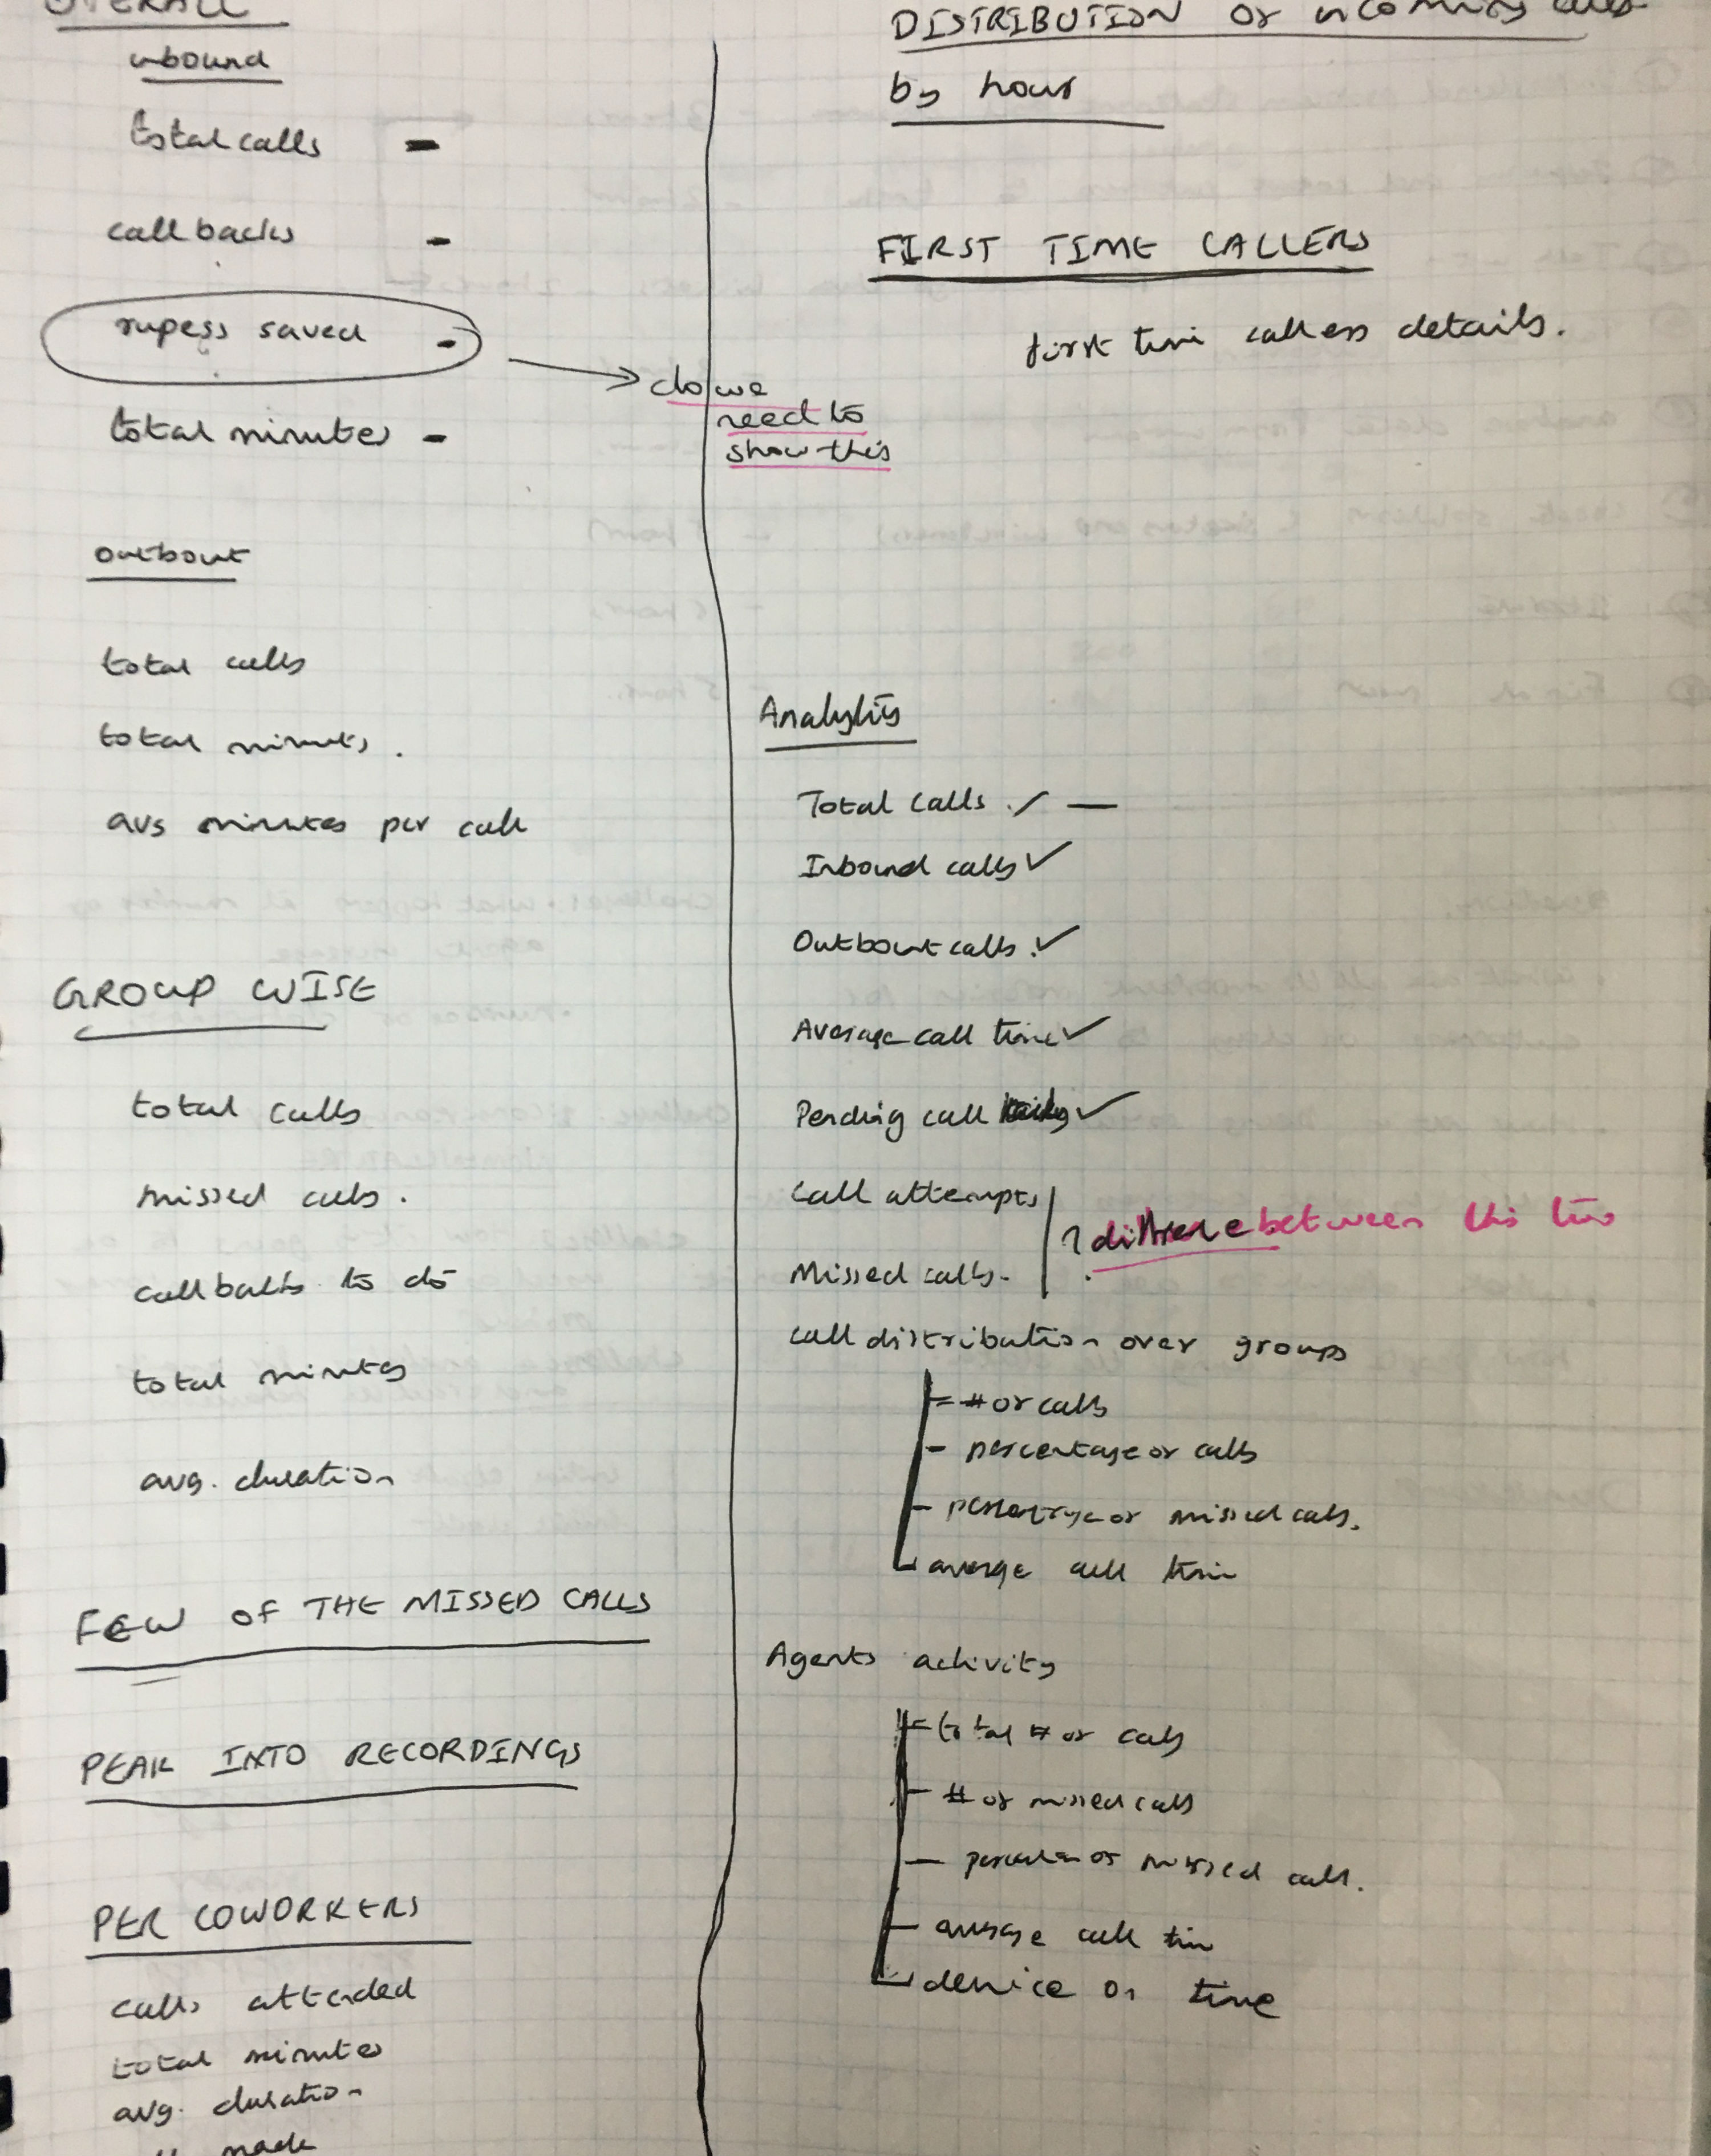 OVERALL
inbound
total calls -
call backs -
rupess saved -
total minutes -
do we
need to
show this
outbount
total calls
total minuts.
avg minutes per call
GROUP WISE
total calls
missed calls.
callbacks to do
total minutes
avg. duration
FEW OF THE MISSED CALLS
PEAK INTO RECORDINGS
PER COWORKERS
calls attended
total minutes
avg. duration
made
DISTRIBUTION OF incoming calls
by hour
FIRST TIME CALLERS
first time callers details.
Analytics
Total calls. ✓ —
Inbound calls ✓
Outbount calls. ✓
Average call time ✓
Pending call ✓
Call attempts
Missed calls.
? differe between this two
call distribution over groups
- # of calls
- percentage of calls
- percentage of missed calls.
- average call time
Agents activity
- total # of calls
- # of missed calls
- of missed calls.
- average call time
- device on time